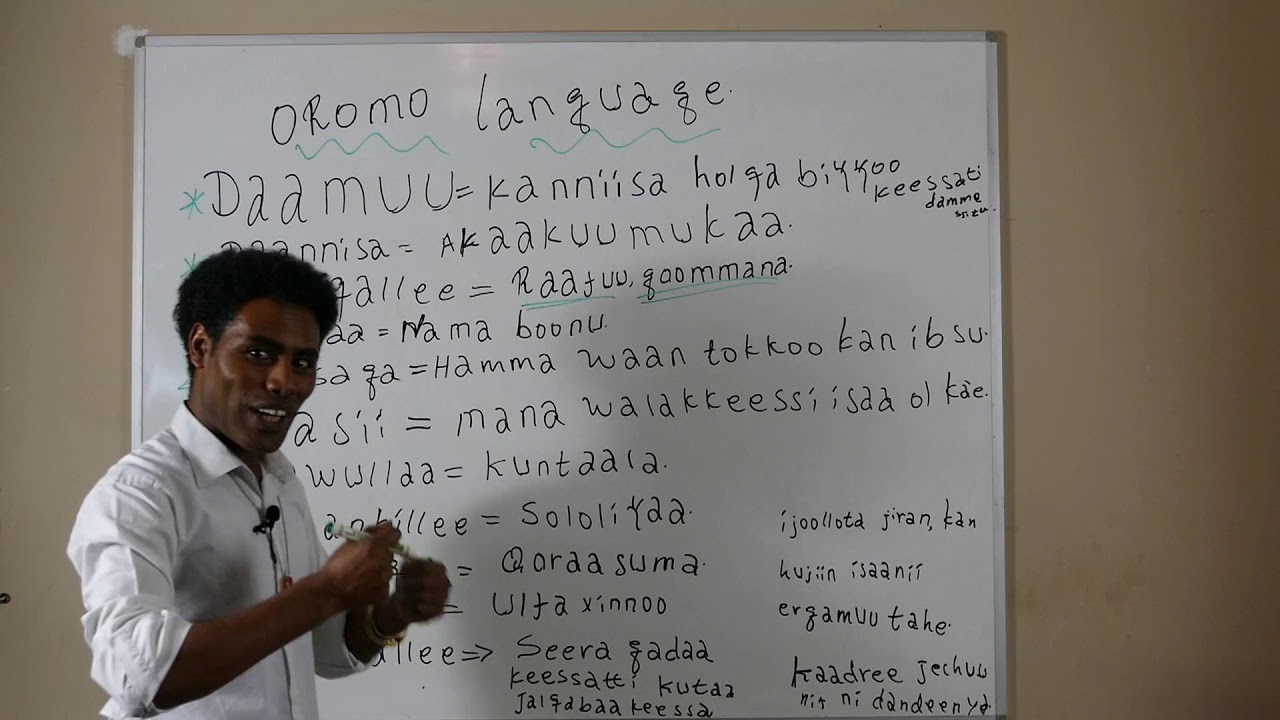 OROMO language.
* Daamuu = kanniisa holqa biyyoo keessati damme ssitu.
* Daannisa = Akaakuu mukaa.
qallee = Raafuu, goommana.
aa = Nama boonu.
saqa = Hamma waan tokkoo kan ibsu.
asii = mana walakkeessi isaa ol kae.
wullaa = kuntaala.
illee = Sololiyaa.
= Qoraasuma.
= Ulfaxinnoo
allee => Seera gadaa
keessatti kutaa
jalqabaa keessa
ijoollota jiran, kan
hujiin isaanii
ergamuu tahe.
kaadree jechuu
nif ni dandeenya